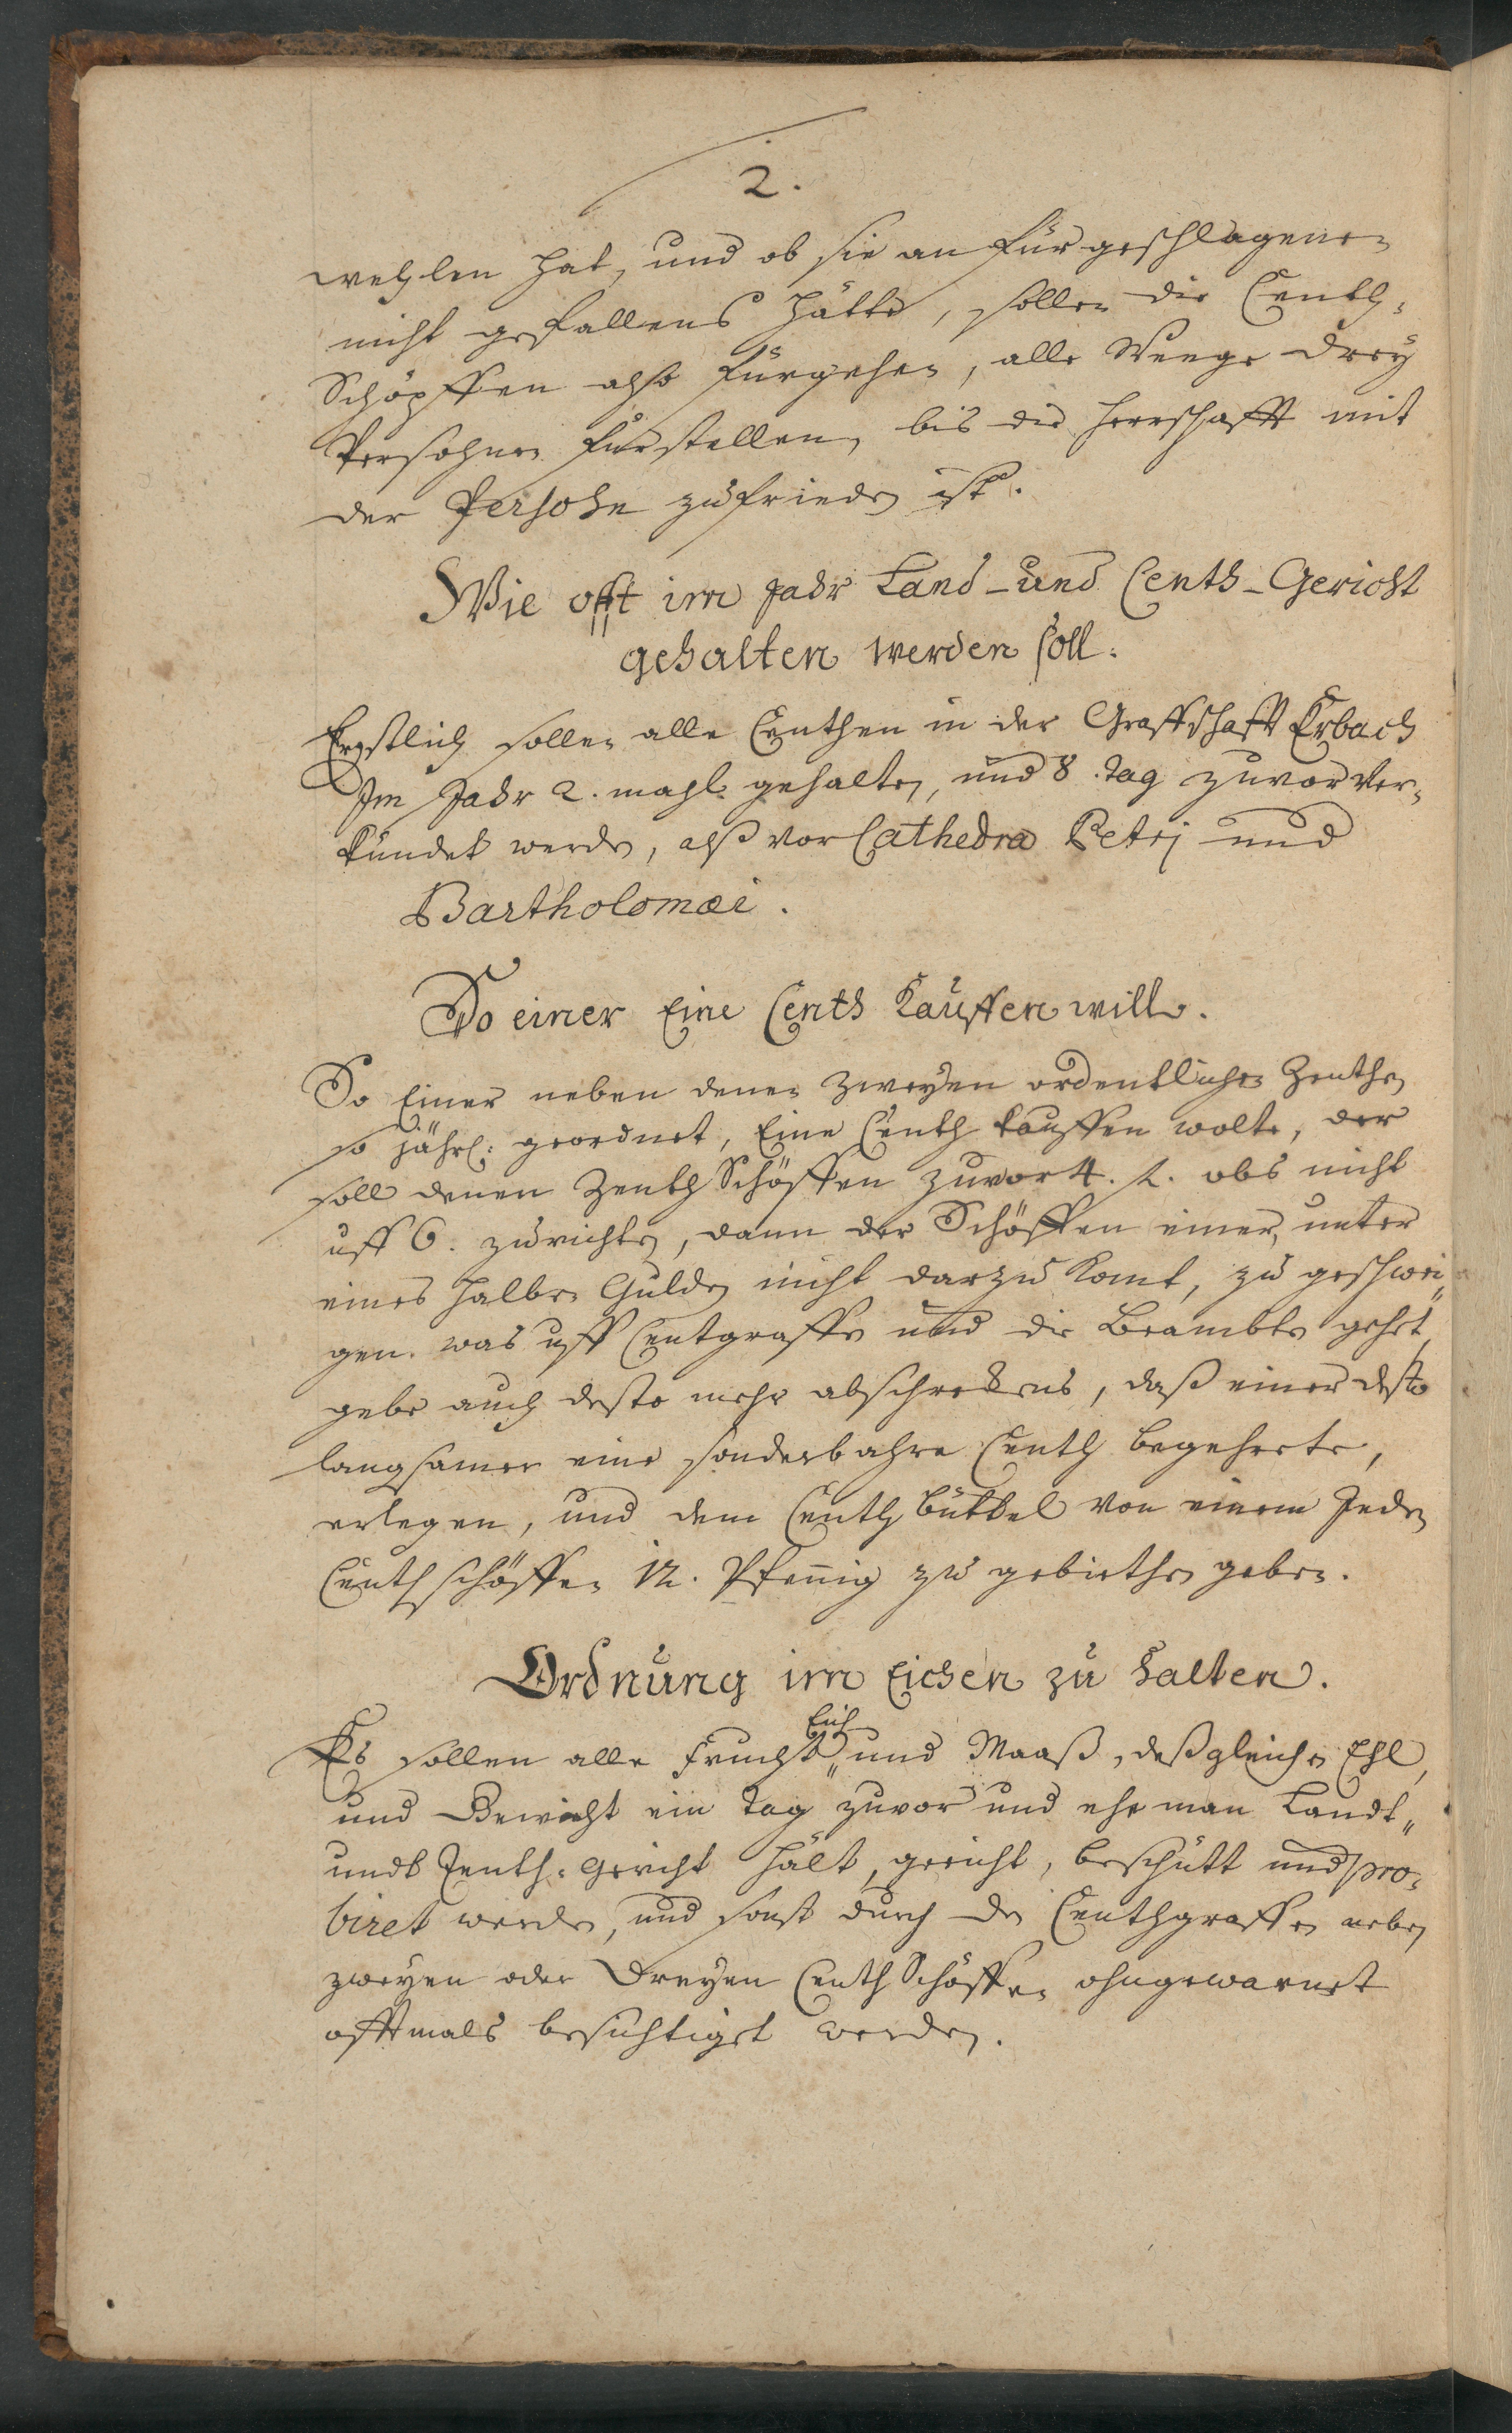 2.
wehlen hat, und ob sie an fürgeschlagenen
nicht gefallens hätte, sollen die Centh-
Schöpffen also fürgehen, alle Weege drey
Persohnen fürstellen, bis die Herrschafft mit
der Persohn zufrieden ist.
Wie offt im Jahr Land- und Centh-Gericht
gehalten werden soll.
Erstlich sollen alle Centhen in der Graffschafft Erbach
Im Jahr 2. mahl gehalten, und 8. tag zuvor ver-
kündet werden, alß vor Cathedra Petri und
Bartholomæi.
So einer Eine Centh Kauffen will.
So Einer neben denen zweyen ordentlichen Zenthen
so jährl: geordnet, Eine Centh kauffen wolte, der
soll denen Zenth Schöffen zuvor 4. f. obs nicht
uff 6. zurichten, dann der Schöffen einer, unter
eines halben Gulden nicht darzu komt, zu geschwei„
gen. was uff Centgraffen und die Beambte gehet,
gebe auch desto mehr abschreckens, daß einer desto
langsamer eine sonderbahre Centh begehrete,
erlegen, und dem Centh büttel von einem Jeden
Centh schöffen 12. Pfennig zu gebiethen geben.
Ordnung im Eichen zu halten.
Eich
Es sollen alle Frucht„ und Maaß, deßgleichen Ehl,
und Gewicht ein tag zuvor und ehe man Landt„
undt Zenth-Gericht hält, geeicht, beschütt und pro-
biret werden, und sonst durch den Centhgraffen neben
zweyen oder dreyen Centh Schöffen ohngewarnet
offtmals besichtiget werden.